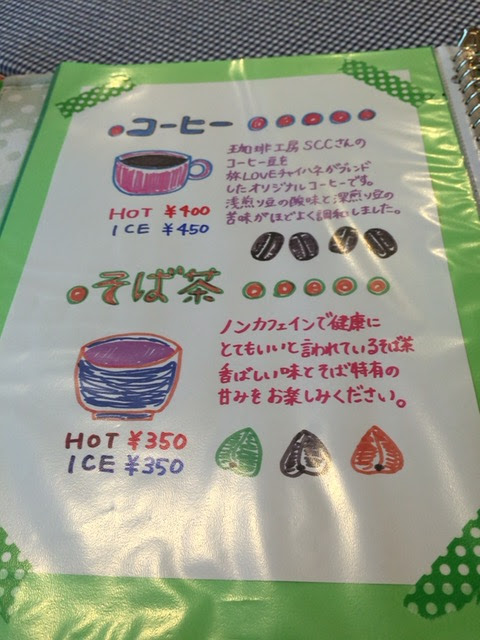 コーヒー
珈琲工房SCCさんの
コーヒー豆を
旅LOVEチャイハネがブレンド
したオリジナルコーヒーです。
浅煎り豆の酸味と深煎り豆の
苦味がほどよく調和しました。
HOT ¥400
ICE ¥450
そば茶
ノンカフェインで健康に
とてもいいと言われているそば茶
香ばしい味とそば特有の
甘みをお楽しみください。
HOT ¥350
ICE ¥350